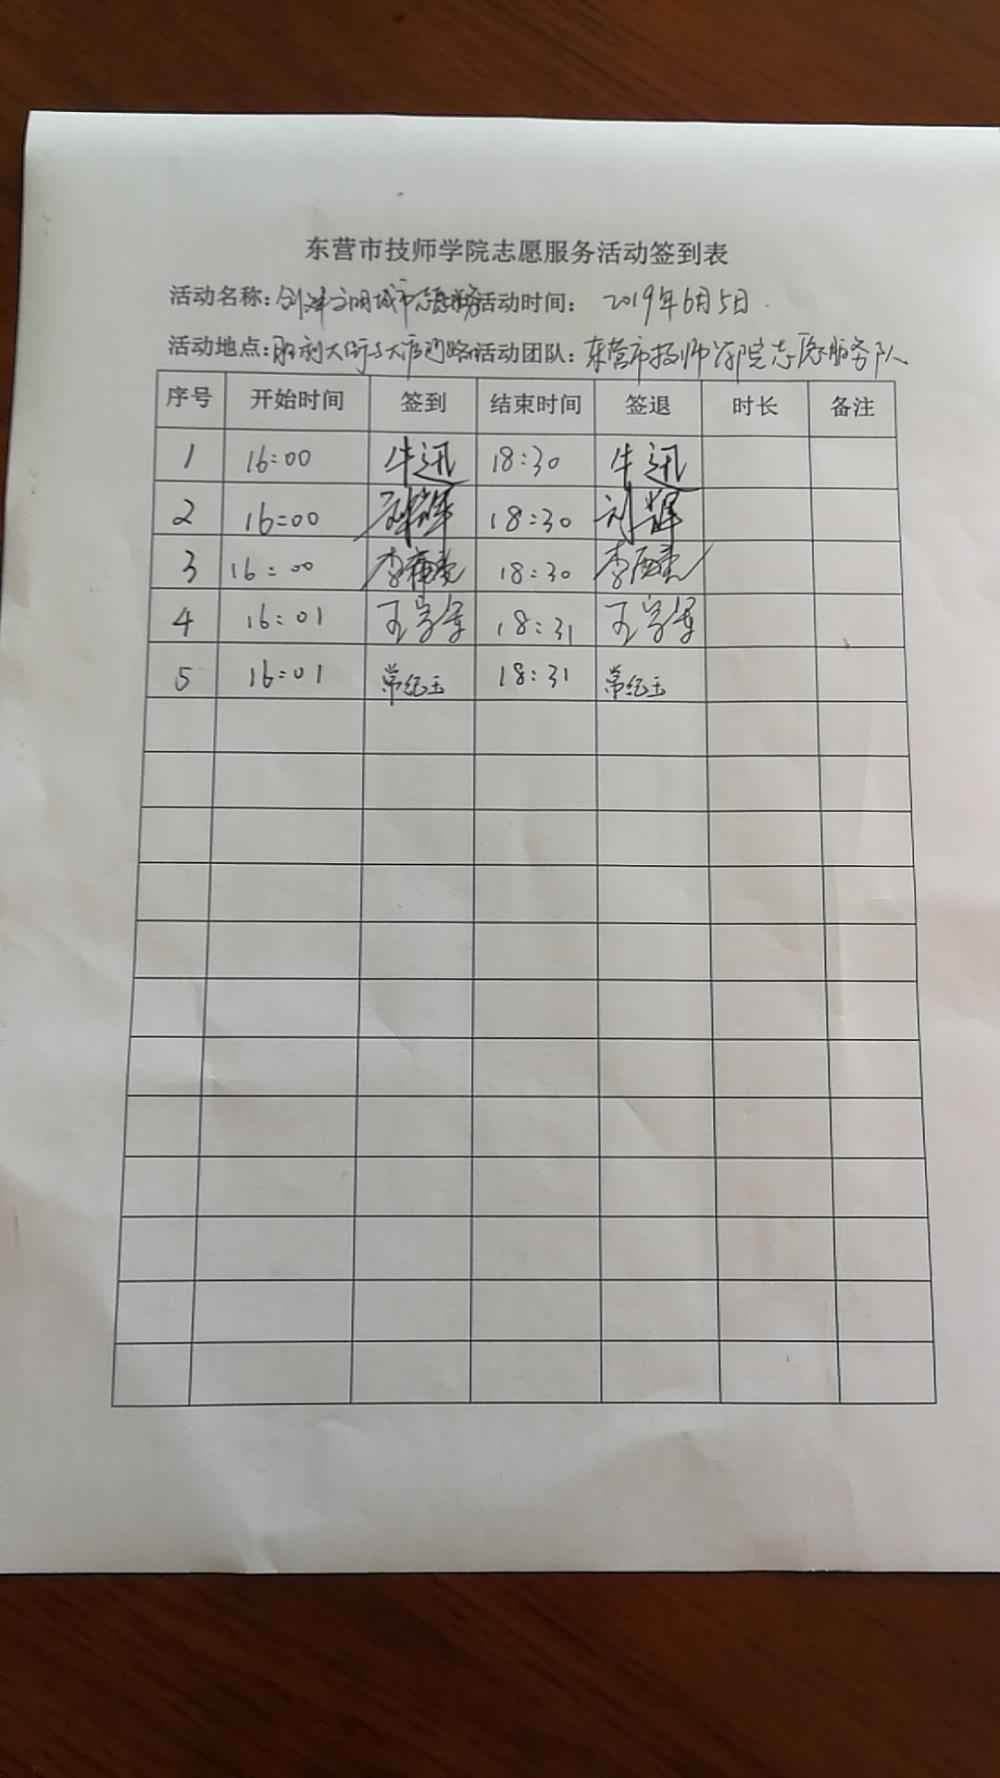 东营市技师学院志愿服务活动签到表
活动名称：创建文明城市志愿服务 活动时间： 2019年6月5日.
活动地点：胜利大街与大渡河路 活动团队：东营市技师学院志愿服务队
序号 开始时间 签到 结束时间 签退 时长 备注
1 16:00 牛迅 18:30 牛迅
2 16:00 刘辉 18:30 刘辉
3 16:00 李 18:30 李
4 16:01 王 18:31 王
5 16:01 常纪玉 18:31 常纪玉